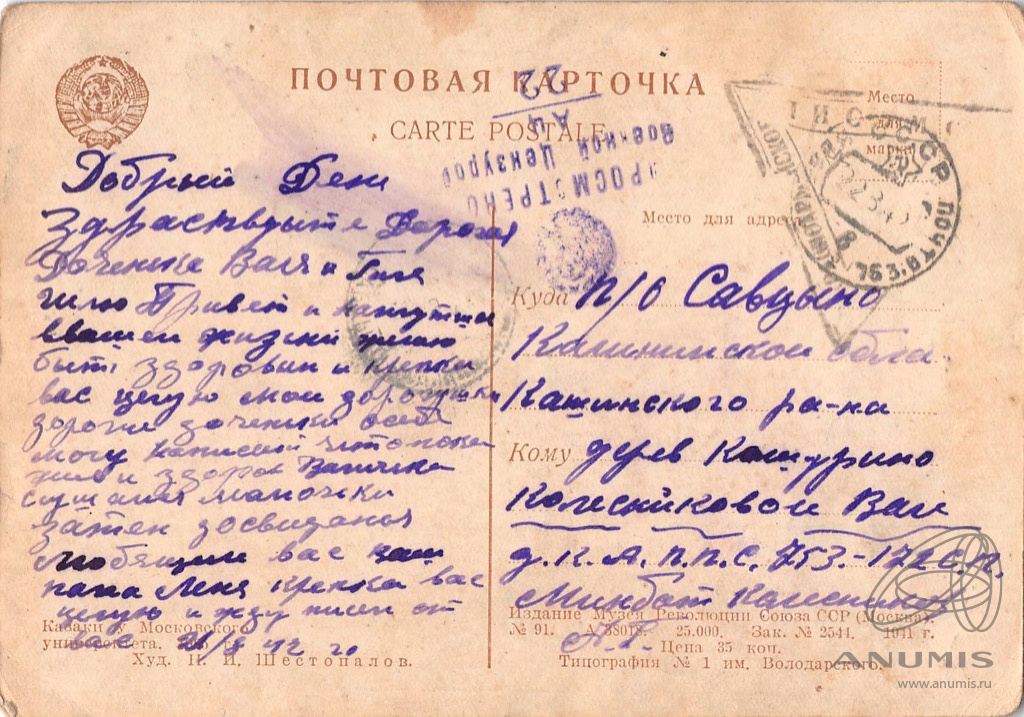 ПОЧТОВАЯ КАРТОЧКА
CARTE POSTALE
22
АЦ
ПРОСМОТРЕНО
Военной Цензурой
Место
для
марки
СССР
ПОЧТА
753
Место для адреса
Добрый Ден
Здраствуыте Дорогая
Доченька Валя и Галя
шлю Привет и
вашей жизни желаю
быт здоровыи и крепки
вас целую мои дорогики
дороги доченьки о себе
могу написат что пока
жив и здоров Валичка
слушаися мамочки
затем досвиданья
любящии вас ваш
папа Леня крепка вас
целую и жду писем от
вас 42 го
Куда п/о Савцыно
Калининскои обла.
Кашинского ра-на
Кому дерев Кошурино
Колесниковои Вали
д.К.А. П.П.С. 753.-172 с.п.
Минбат Колесников
А.Г.
Казаки у Московского
университета,
Худ. Н. И. Шестопалов.
Издание Музея Революции Союза ССР (Москва).
№ 91. А 38018. 25.000. Зак. № 2544. 1941 г.
Цена 35 коп.
Типография № 1 им. Володарского.
ANUMIS
www.anumis.ru